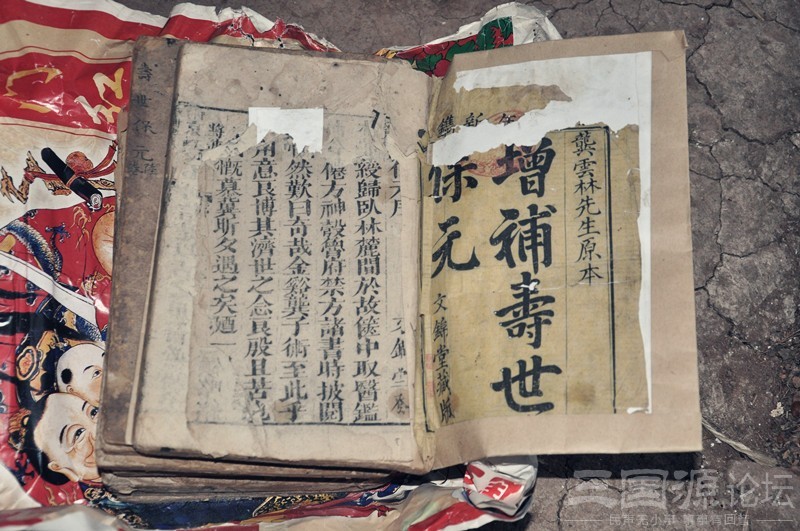 龔雲林先生原本
增補壽世
保元
文錦堂藏版
綬歸臥林麓間於故篋中取醫鑑
僊方神彀魯府禁方諸書時披閱
然歎曰奇哉金谿龔子術至此乎
用意良博其濟世之念良殷且苦
慨慕冀昕夕遇之矣廼一
壽世保元
三国源论坛